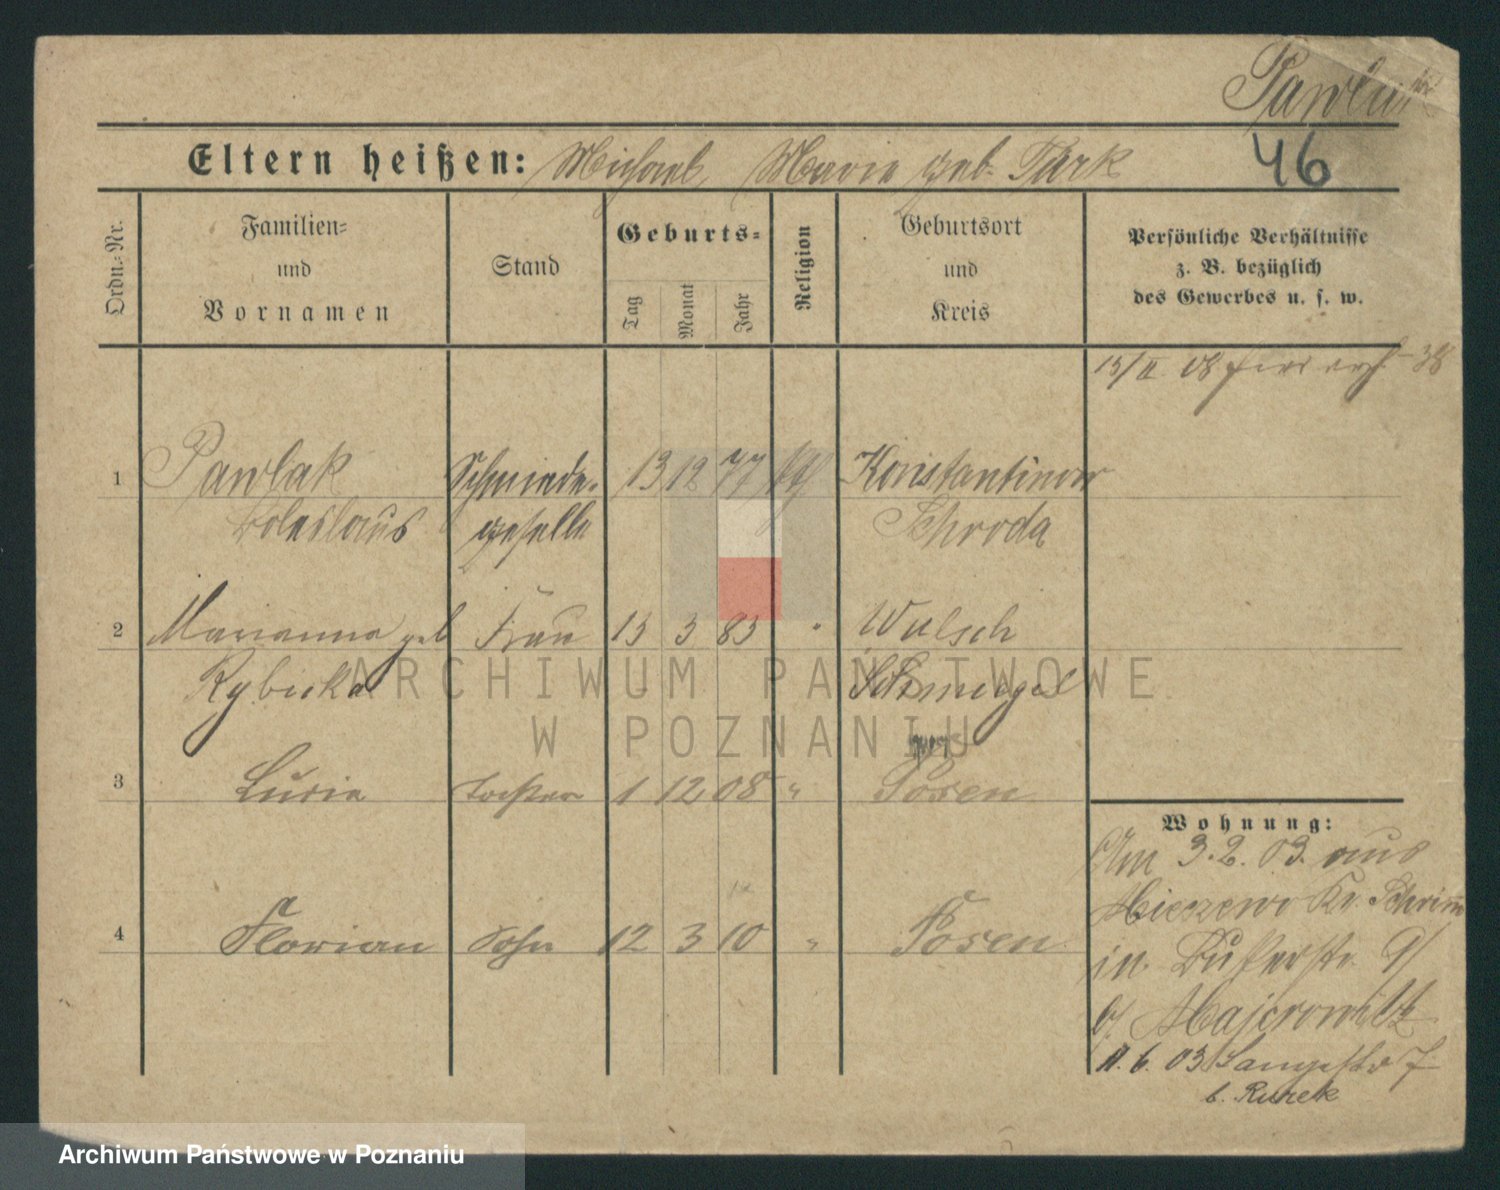 Pawlak
Eltern heißen: Michael, Marie geb. Turk
46
Ordn.-Nr.
Familien-
und
Vornamen
Stand
Geburts-
Tag
Monat
Jahr
Religion
Geburtsort
und
Kreis
Persönliche Verhältnisse
z. B. bezüglich
des Gewerbes u. s. w.
13/II 08
1 Pawlak Schmiede- 13 12 77 Konstantinowo
Boleslaus geselle Schroda
2 Marianna geb Frau 13 3 83 " Wulsch
Rybicka Schmiegel
3 Lucie Tochter 1 12 08 " Posen
4 Florian Sohn 12 3 10 " Posen
Wohnung:
Am 3.2.03. aus
Mieczewo Kr. Schrimm
in
b/ Majerowitz
11.6.03 Langestr 7
b. Rusek
ARCHIWUM PAŃSTWOWE
W POZNANIU
Archiwum Państwowe w Poznaniu